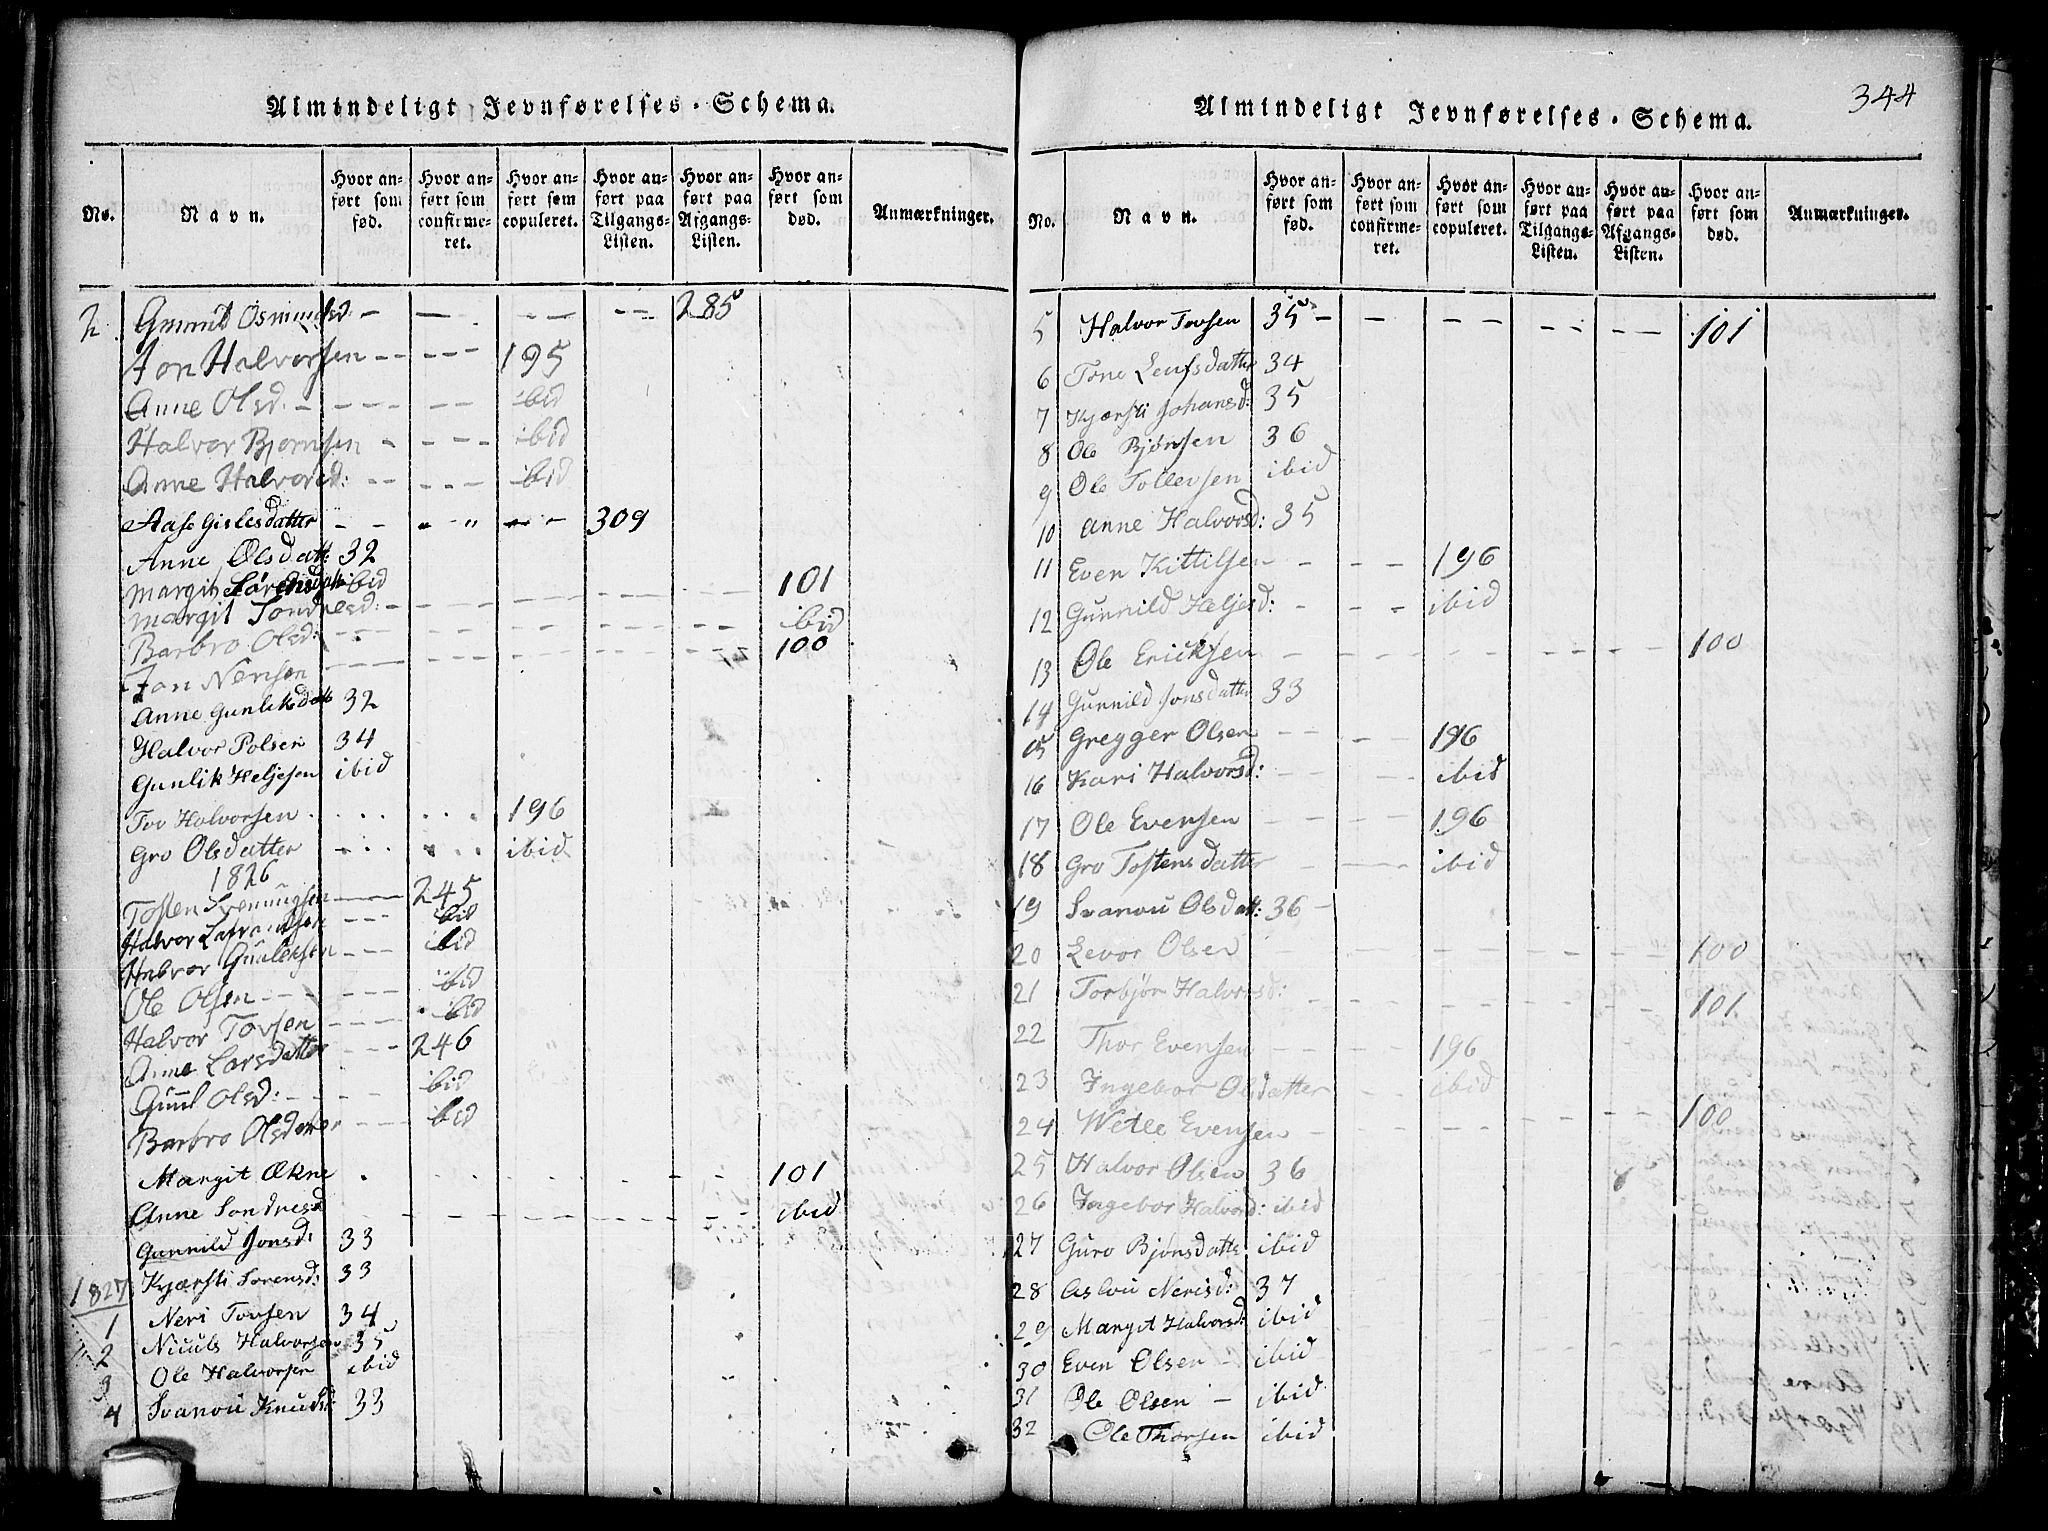 Almindeligt Jevnførelses-Schema.
No. Navn. Hvor anført som fød. Hvor anført som confirmeret. Hvor anført som copuleret. Hvor anført paa Tilgangs-Listen. Hvor anført paa Afgangs-Listen. Hvor anført som død. Anmærkninger.
285
Jon Halvorsen - - - - - 195
Anne Olsd. - - - - - - ibid
Halvor Bjørnsen - - - - ibid
Anne Halvorsd: - - - - - ibid
Aase Gislesdatter - - " " - - 309
Anne Olsdatt: 32
Margit Sørensdatt: ibid
Margit Sondresd: - - - - - 101
Barbro Olsd: - - - - - ibid
Jon Nerisen - - - - - 100
Anne Gunliksdatt 32
Halvor Polsen 34
Gunlik Heljesen ibid
Tov Halvorsen . . . . . . 196
Gro Olsdatter - . . . . . ibid
1826
Tosten Svenungsen - 245
Halvor - - - ibid
Halvor Gunleksen - - - ibid
Ole Olsen - - - - - ibid
Halvor Tovsen - - - - ibid
Anne Larsdatter - - - 246
Olsd: - - - - ibid
Barbro Olsdatter - - - ibid
Margit . . . . . . 101
Anne Sondresd - - - - - ibid
Gunnild Jonsd: 33
Kjærsti Sorensd: 33
1827
1 Neri Tovsen 34
2 Halvorsen 35
3 Ole Halvorsen ibid
4 Svanou Knudsd: 33
344
Almindeligt Jevnførelses-Schema.
No. Navn. Hvor anført som fød. Hvor anført som confirmeret. Hvor anført som copuleret. Hvor anført paa Tilgangs-Listen. Hvor anført paa Afgangs-Listen. Hvor anført som død. Anmærkninger.
5 Halvor Tovsen 35 - - - - - - 101
6 Tone Leufsdatter 34
7 Kjærsti Johansd: 35
8 Ole Bjønsen 36
9 Ole Tollevsen ibid
10 Anne Halvorsd: 35
11 Even Kittilsen - - - - 196
12 Gunnild Heljesd: - - - ibid
13 Ole Ericksen - - - - - - 100
14 Gunnild Jonsdatter 33
15 Gregger Olsen - - - - 196
16 Kari Halvorsd: - - - - ibid
17 Ole Evensen - - - - 196
18 Gro Tostensdatter - - - - ibid
19 Svanou Olsdatt: 36 -
20 Levor Olsen - - - - - - 100
21 Torbjør Halvorsd: - - - - - 101
22 Thor Evensen - - - - 196
23 Ingebor Olsdatter - - ibid
24 Wetle Evensen - - - - - 100
25 Halvor Olsen 36
26 Ingebor Halvorsd: ibid
27 Guro Bjønsdatte ibid
28 Aslou Nerisd: 37
29 Margit Halvorsd: ibid
30 Even Olsen - ibid
31 Ole Olsen - ibid
32 Ole Thorsen ibid